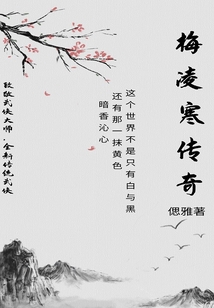 梅凌寒传奇
偲雅著
这个世界不是只有白与黑
还有那一抹黄色
暗香沁心
致敬武侠大师，全新传统武侠